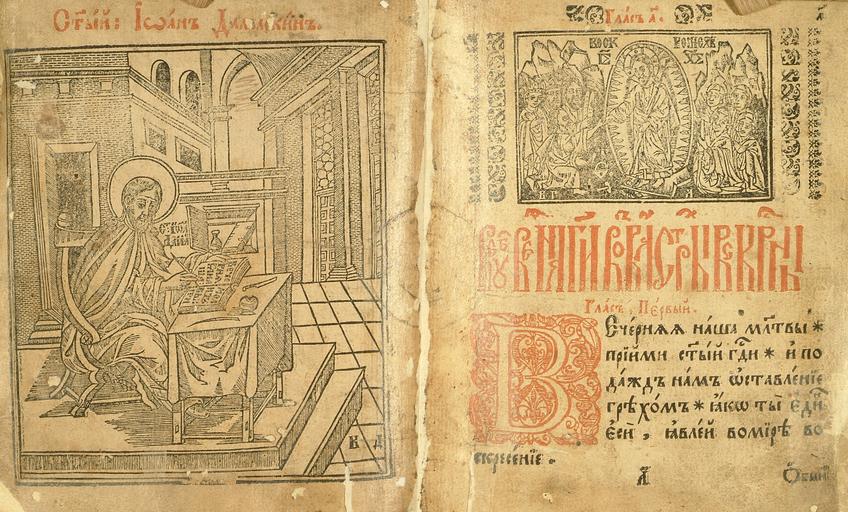 Ст҃ый: Іѡа́нъ Дамаски́нъ.
Гла́съ а҃.
ВОСК РЕСЕ
ХВ҃
Гла́съ, Пе́рвый.
Вече́рнѧѧ на́ша мл҃твы *
прїйми ст҃ый гд҃и * и по
да́ждъ на́мъ ѡставле́нїе
грѣхо́мъ * ꙗ́кѡ ты̀ є҆ди́нъ
є҆сѝ , ꙗвле́й вомі́рѣ во
скресе́нїе .
а҃